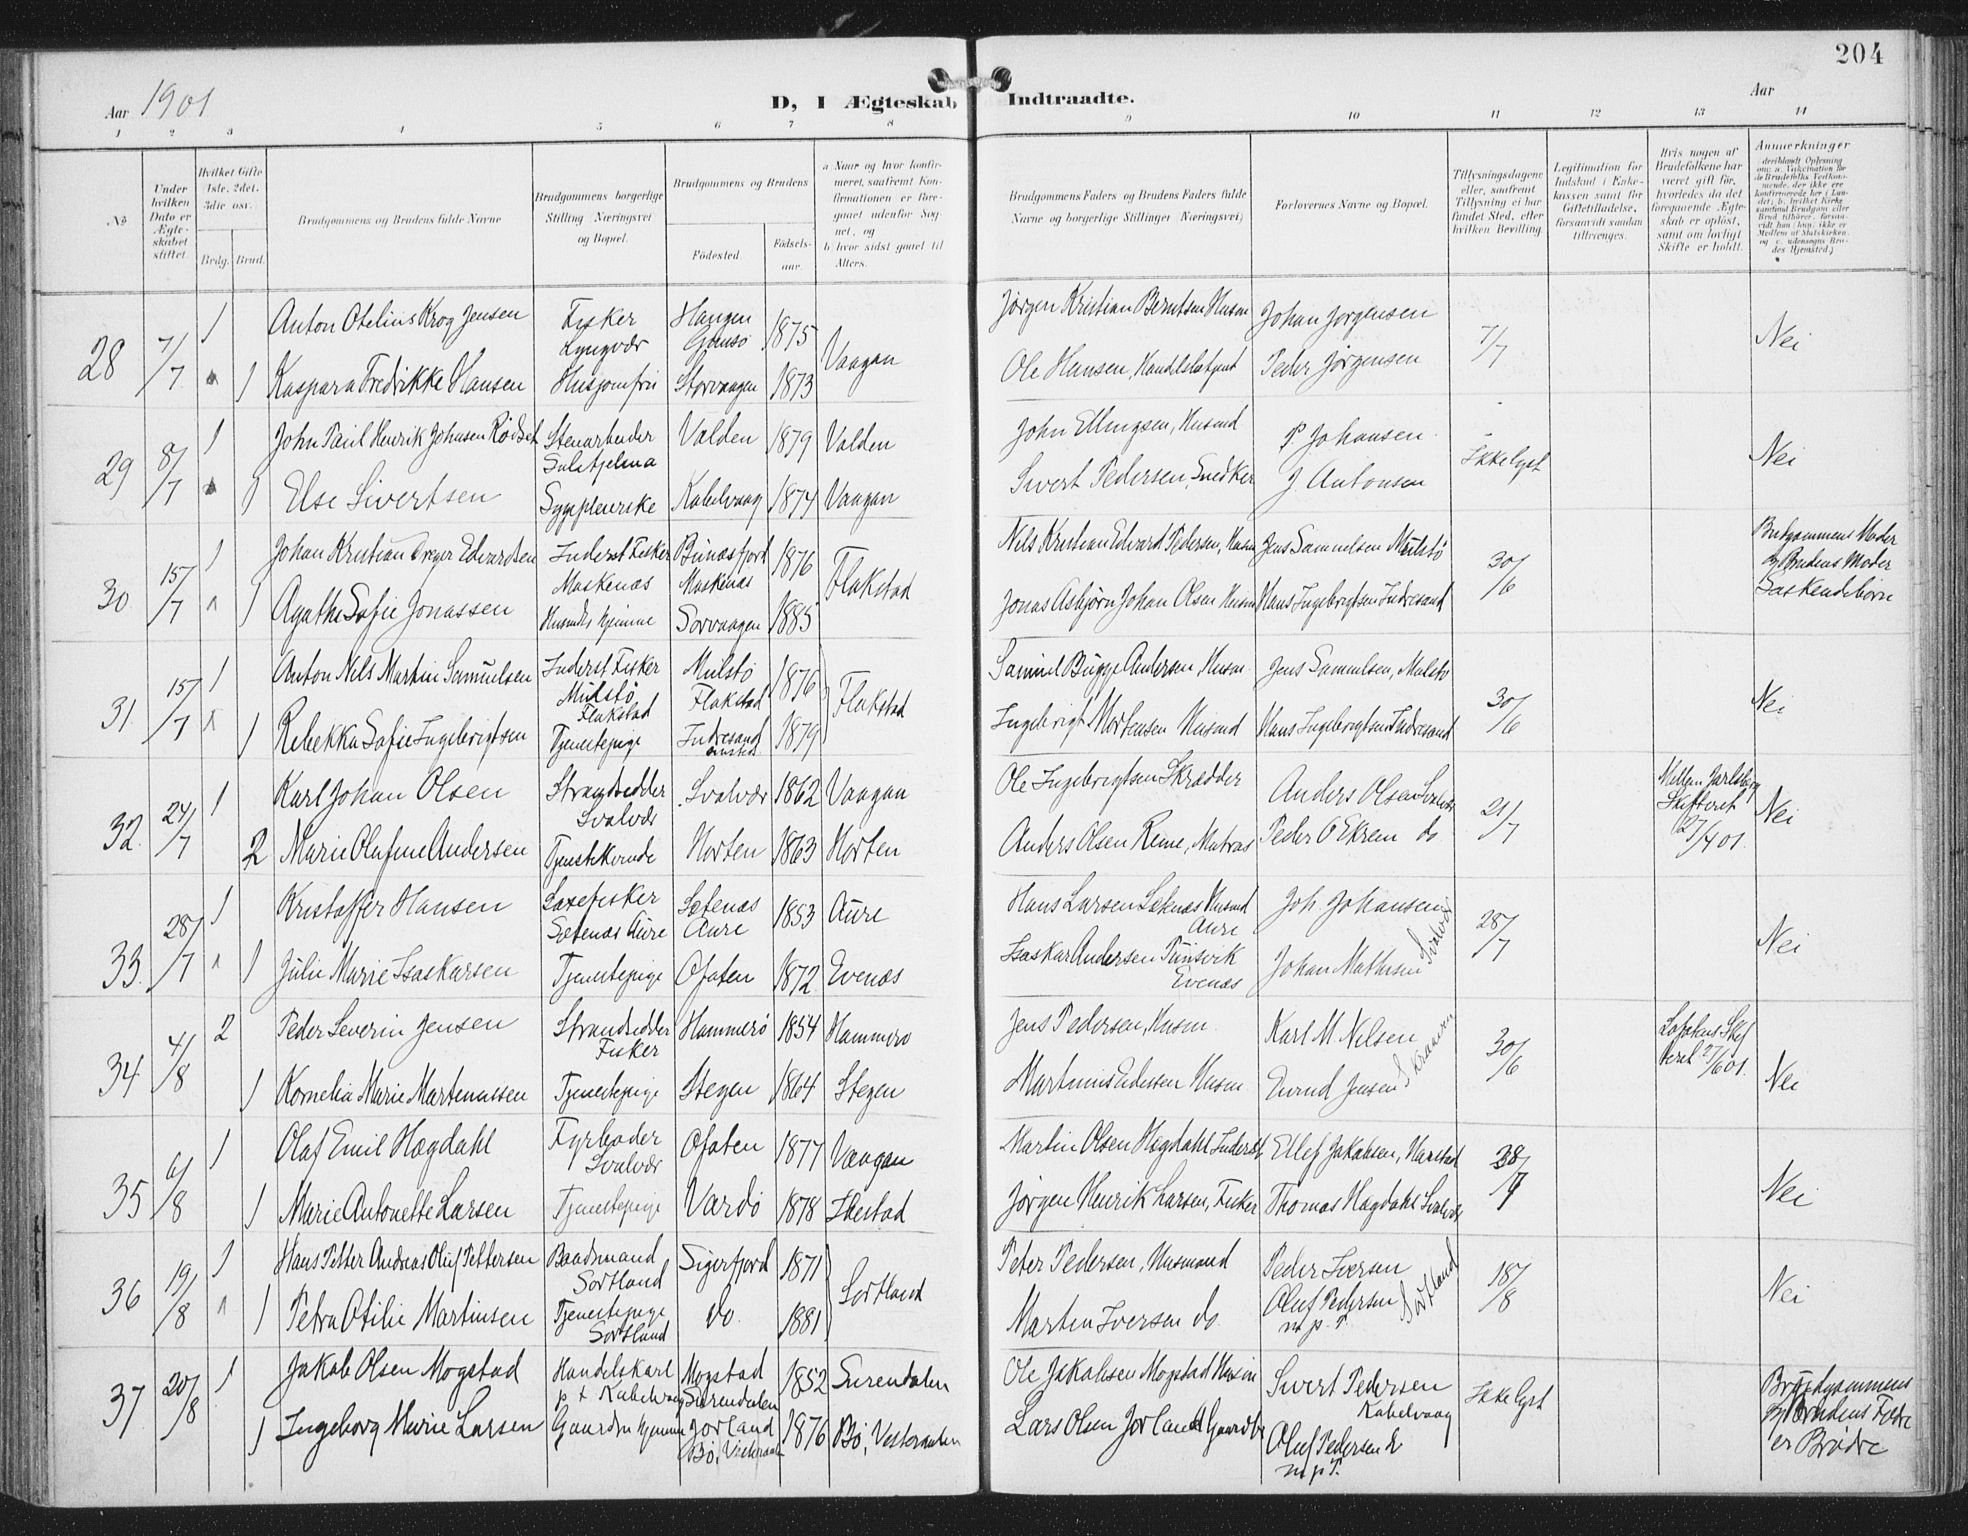 204
Aar 1901
D, 1 Ægteskab Indtraadte.
Aar
1 2 3 4 5 6 7 8 9 10 11 12 13 14
No
Under hvilken Dato er Ægteskabet stiftet.
Hvilket Gifte 1ste, 2det, 3die osv.
Brdg. Brud.
Brudgommens og Brudens fulde Navne
Brudgommens borgerlige Stilling (Næringsvei) og Bopæl.
Brudgommens og Brudens
Fødested. Fødsels-aar.
a. Naar og hvor konfirmeret, saafremt Konfirmationen er foregaaet udenfor Sognet, og
b. hvor sidst gaaet til Alters.
Brudgommens Faders og Brudens Faders fulde Navne og borgerlige Stilling (Næringsvei)
Forlovernes Navne og Bopæl.
Tillysningsdagene eller, saafremt Tillysning ei har fundet Sted, efter hvilken Bevilling.
Legitimation for Indskud i Enkekassen samt for Giftetilladelse, forsaavidt saadan tiltrænges.
Hvis nogen af Brudefolkene har været gift før, hvorledes da det foregaaende Ægteskab er opløst, samt om lovligt Skifte er holdt.
Anmerkninger
28 7/7 1 Anton Otelius Krog Jensen Fisker Lyngvær 1875 Jørgen Kristian Berntsen Husm Johan Jørgensen 7/7 Nei
1 Kaspara Fredrikke Hansen Husjomfru Storvaagen 1873 Vaagan Ole Hansen, Peder Jørgensen
29 8/7 1 John Paul Henrik Johnsen Rødset Stenarbeider Sulitjelma Valden 1879 Valden John Ellingsen, Husmd P. Johansen Ikke lyst Nei
1 Else Sivertsen Sygepleierske Kabelvaag 1874 Vaagan Sivert Pedersen, Snedker J. Antonsen
30 15/7 1 Johan Kristian Edvardsen Inderst Fisker Moskenæs Bunæsfjord Moskenæs 1876 Flakstad Nils Kristian Edvard Pedersen, Husm Jens Samuelsen Mulstø 30/6 Brudgommens Moder og Brudens Moder Søskendebørn
1 Agathe Sofie Jonassen Husmds Hjemme Sørvaagen 1885 Jonas Asbjørn Johan Olsen Husm Hans Ingebrigtsen Indresand
31. 15/7 1 Anton Nils Martin Samuelsen Inderst Fisker Mulstø Flakstad Mulstø Flakstad 1876 Flakstad Samuel Bugge Andersen, Husm. Jens Samuelsen, Mulstø 30/6 Nei
1 Rebekka Sofie Ingebrigtsen Tjenestepige Indresand 1879 Ingebrigt Mortensen Husmd Hans Ingebrigtsen Indresand
32. 24/7 1 Karl Johan Olsen Strandsidder Svolvær Svolvær 1862 Vaagan Ole Ingebrigtsen Skrædder Anders Olsen Svolvær 21/7 Jarlsberg Skifteret 27/4 01. Nei
2 Marie Olafine Andersen Tjenstekvinde Horten 1863 Horten Anders Olsen Reine, Matros Peder O Ekrem do
33. 28/7 1 Kristoffer Hansen Sætenæs Aure Sætenæs Aure 1853 Aure Hans Larsen Sætenæs Husmd Aure Joh. Johansen 28/7 Nei
1 Julie Marie Isaskarsen Tjenestepige Ofoten 1872 Evenæs Isaskar Andersen Evenæs Johan Mathisen Svolvær
34 4/8 2 Peder Severin Jensen Strandsidder Fisker Hammerø 1854 Hammerø Jens Pedersen, Husm. Karl M. Nilsen 30/6 Lofotens Skifteret 27/6 01. Nei
1 Kornelia Marie Martinussen Tjenestepige Stegen 1864 Stegen Martinus Husm Eivind Jensen Skraaven
35 6/8 1 Olaf Emil Hagdahl Fyrbøder Svolvær Ofoten 1877 Vaagan Martin Olsen Hagdahl Inderst Ellef Jakobsen, Harstad 28/7 Nei
1 Marie Antonette Larsen Tjenestepige Vardø 1878 Ibestad Jørgen Henrik Larsen, Fisker Thomas Hagdahl Svolvær
36 19/8 1 Hans Petter Andreas Oluf Pettersen Baadsmand Sortland Sigerfjord 1871 Sortland Peter Pedersen, Husmand Peder Iversen 18/8 Nei
1 Petra Otilie Martinsen Tjenestepige Sortland do. 1881 Martin Iversen do. Oluf Pedersen m. p. P. Sortland
37. 20/8 1 Jakob Olsen Mogstad Handelskarl p t Kabelvaag Mogstad Surendalen 1852 Surendalen Ole Jakobsen Mogstad Husm Sivert Pedersen Kabelvaag Ikke lyst Brudgommens og Brudens Fædre er Brødre
1 Ingeborg Marie Larsen Gaardm Hjemme Jorland Bø, Vesteraalen 1876 Bø, Vesteraalen Lars Olsen Jorland Gaardbr Oluf Pedersen m. p. P.